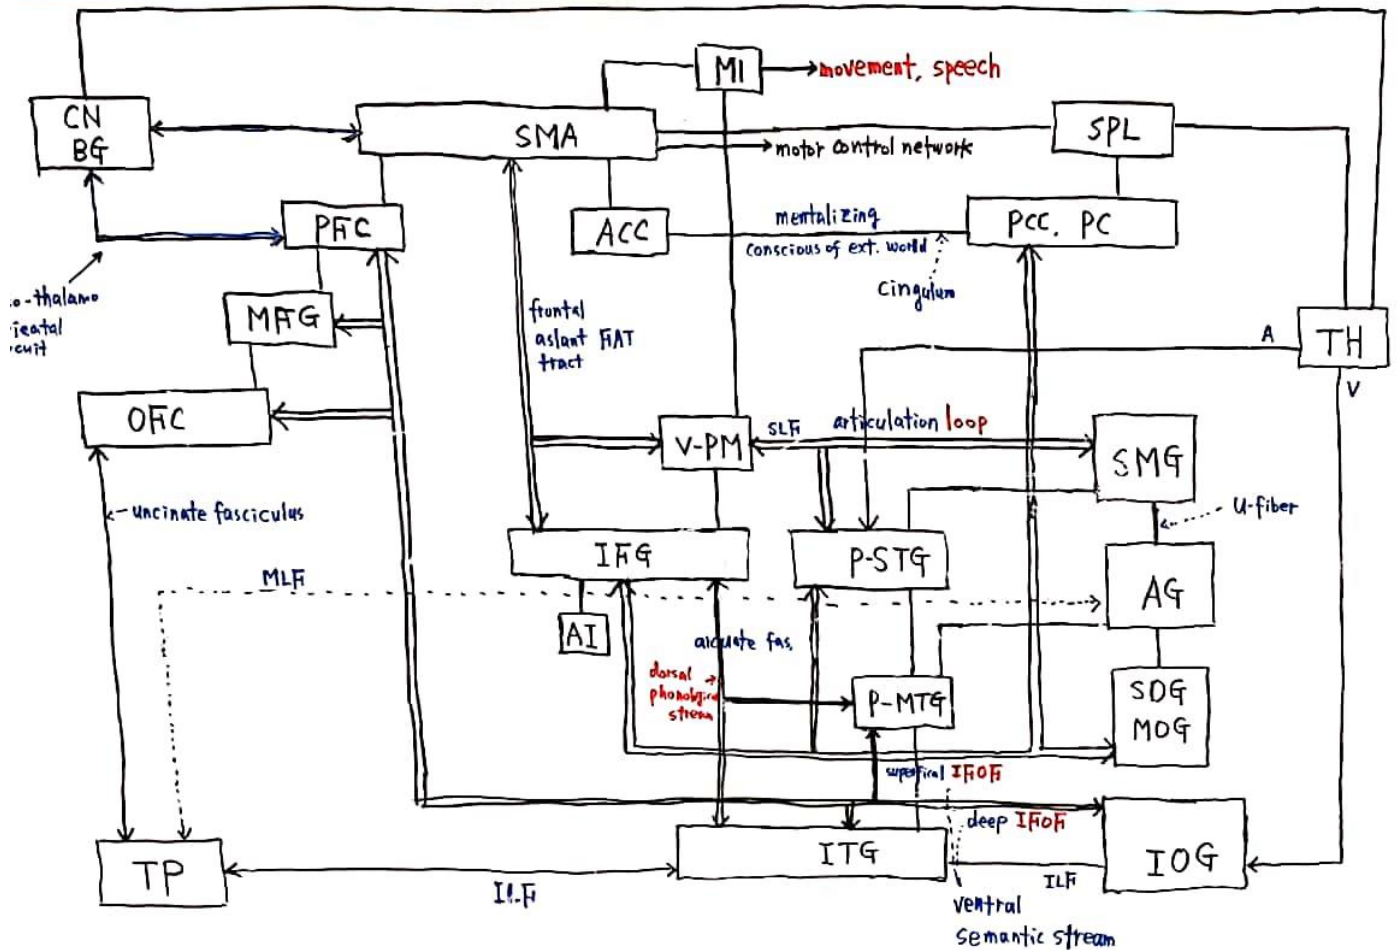 MI
movement, speech
CN
BG
SMA
SPL
motor control network
PFC
ACC
mentalizing
conscious of ext. world
PCC, PC
cingulum
o-thalamo
cuit
MFG
frontal
aslant FAT
tract
A
TH
V
OFC
V-PM
SLF
articulation loop
SMG
uncinate fasciculus
U-fiber
IFG
P-STG
MLF
AG
AI
arcuate fas.
dorsal
phonological
stream
P-MTG
SOG
MOG
superfical IFOF
deep IFOF
TP
ITG
IOG
ILF
ILF
ventral
semantic stream